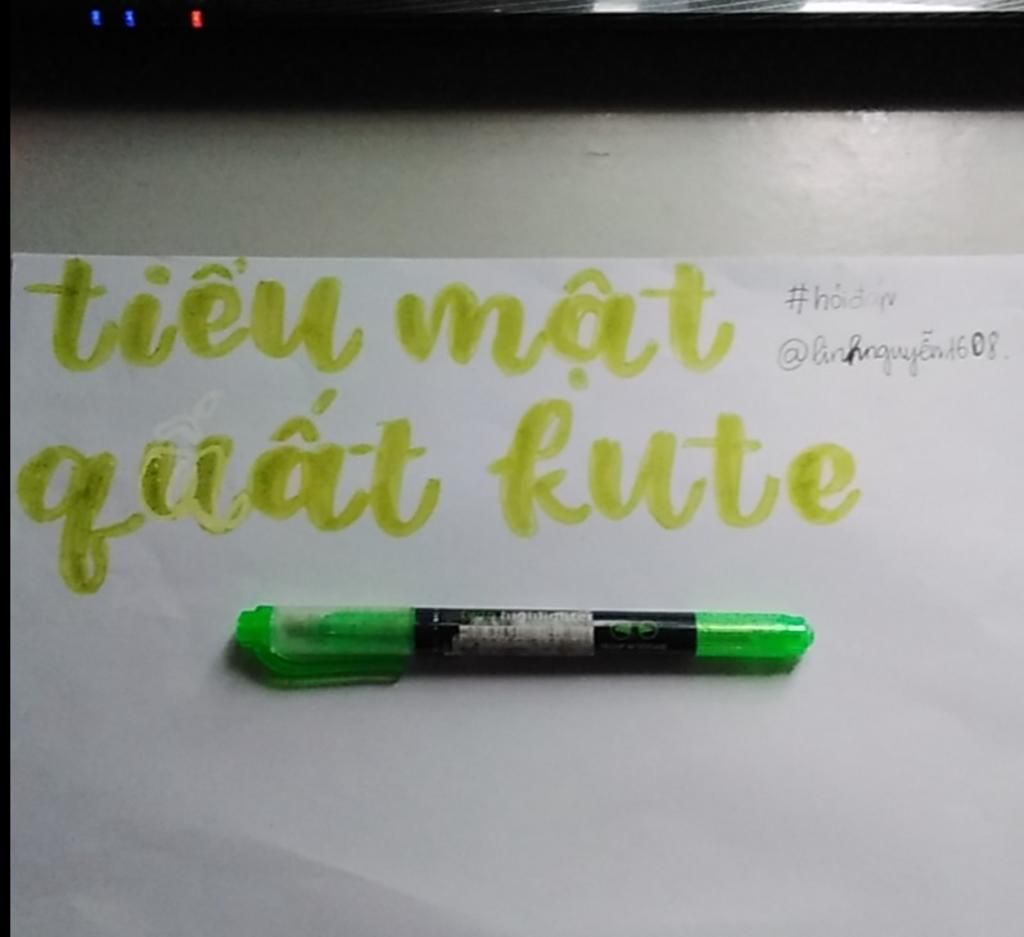 tiểu mật
quất kute
#hỏiđáp
@linhnguyễn1608.
highlighter